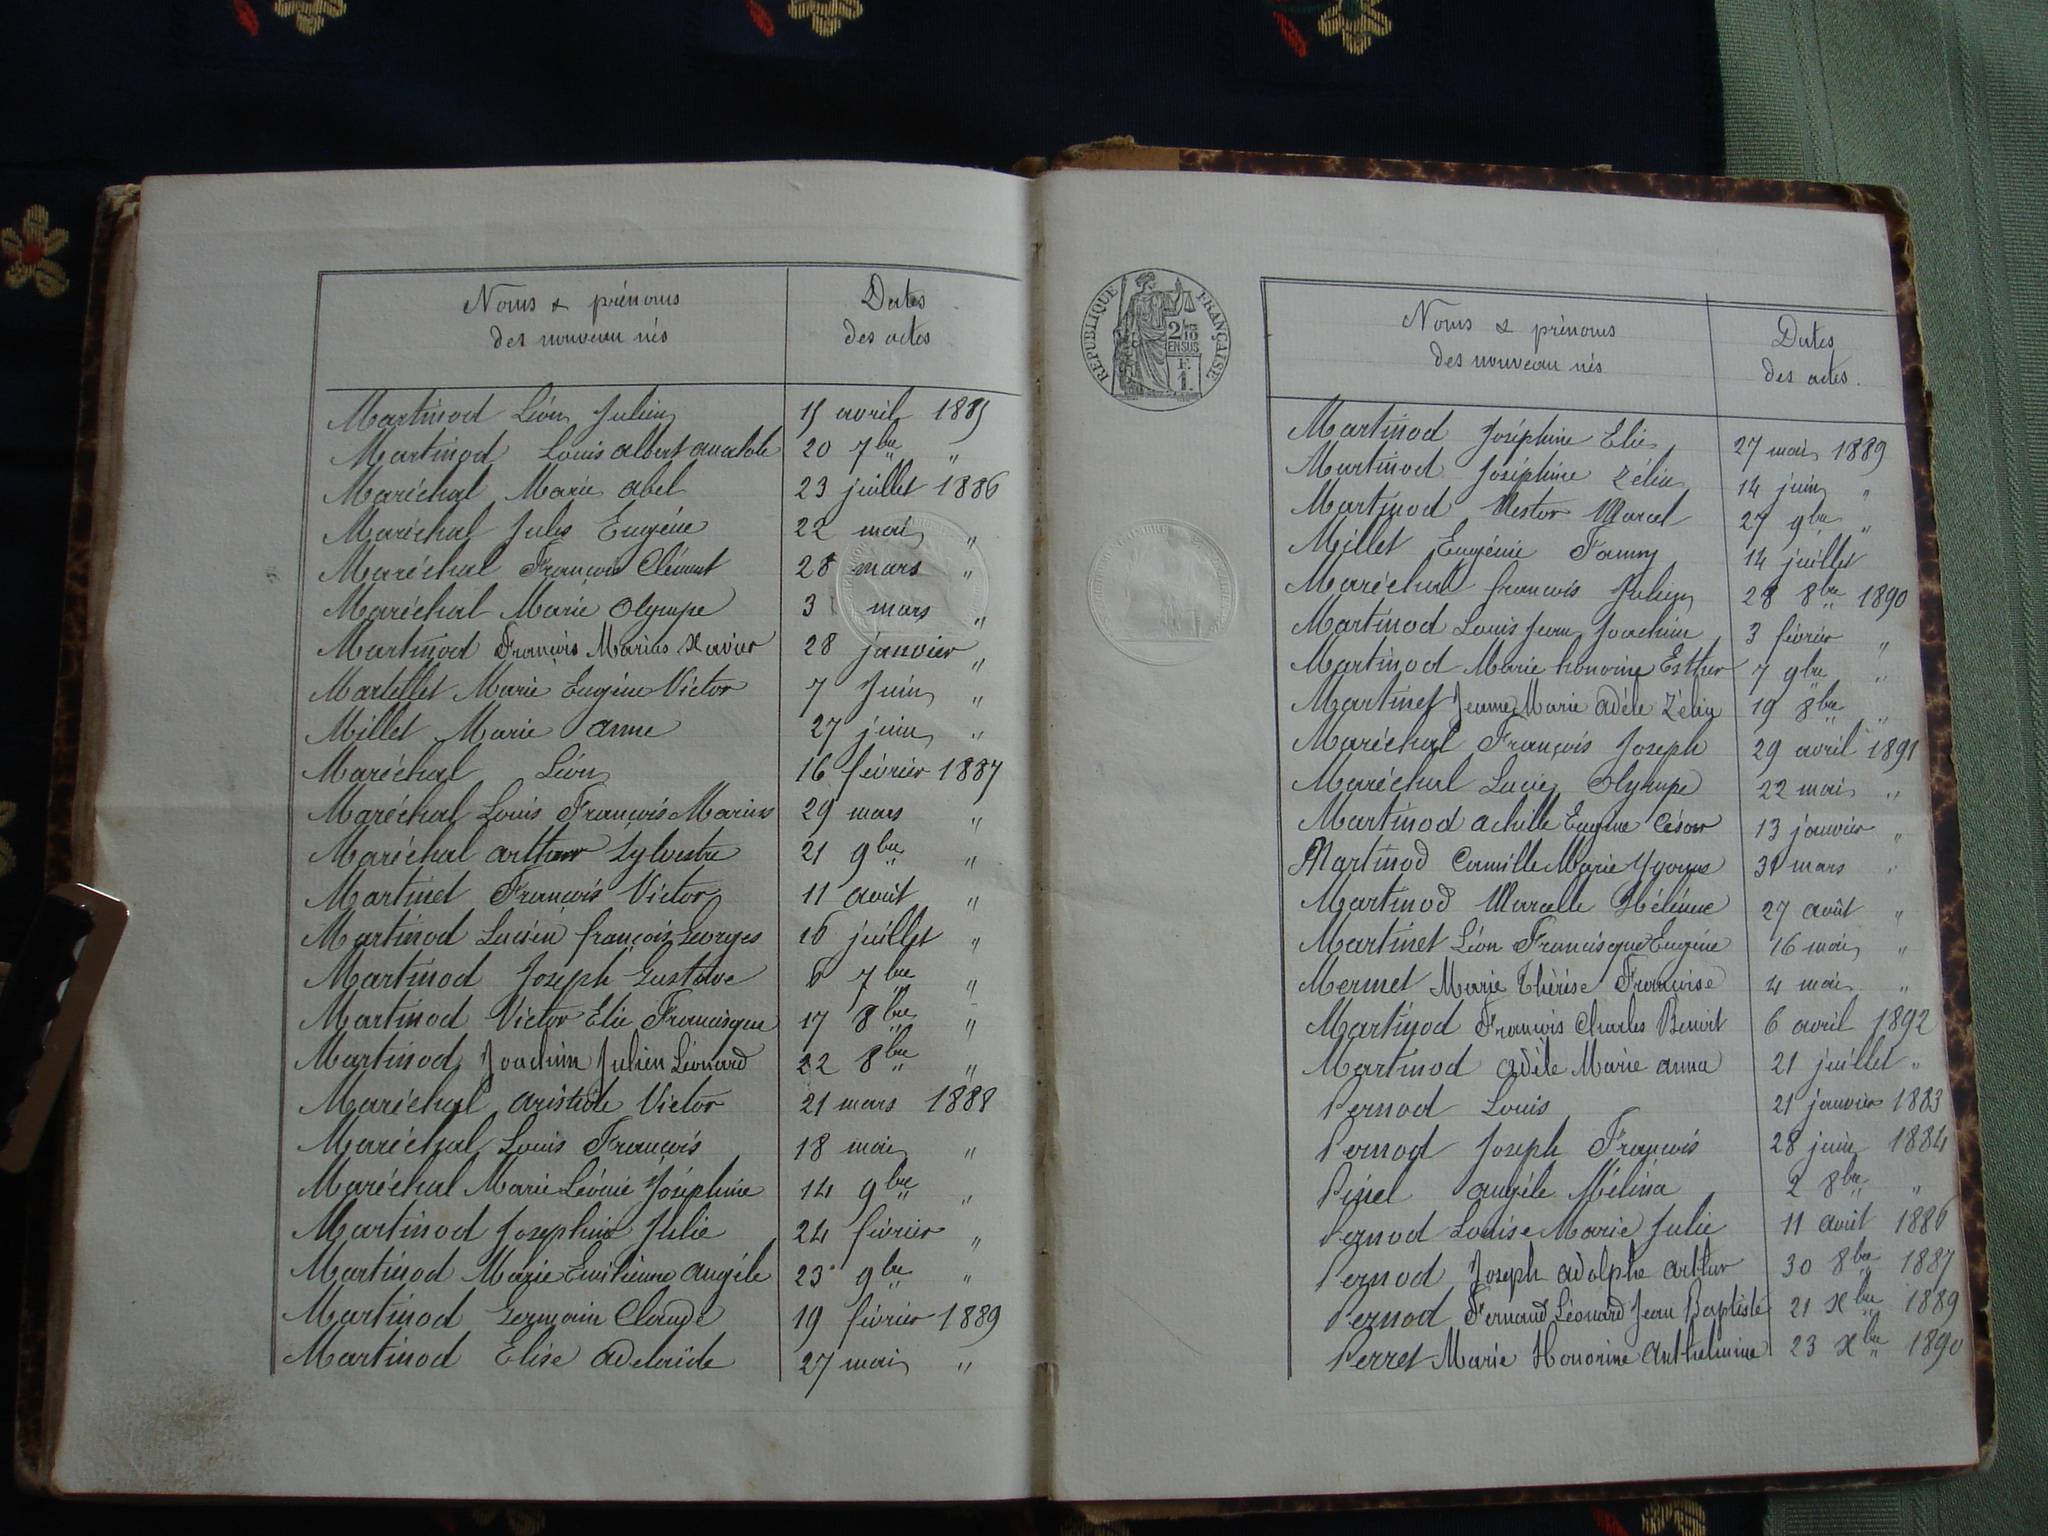 Noms & prénoms
des nouveau nés
Dates
des actes
Martinod Léon Julien 15 avril 1885
Martinod Louis albert anatole 20 7bre "
Maréchal Marie abel 23 juillet 1886
Maréchal Jules Eugène 22 mai "
Maréchal François Clément 28 mars "
Maréchal Marie Olympe 3 mars "
Martinod François Marius Xavier 28 janvier "
Martellet Marie Eugène Victor 7 Juin "
Millet Marie anne 27 juin "
Maréchal Léon 16 février 1887
Maréchal Louis François Marius 29 mars "
Maréchal arthur Sylvestre 21 9bre "
Martinet François Victor 11 août "
Martinod Lucien françois Georges 16 juillet "
Martinod Joseph Gustave 6 7bre "
Martinod Victor Elie Francisque 17 8bre "
Martinod Joachim Julien Léonard 22 8bre "
Maréchal aristide Victor 21 mars 1888
Maréchal Louis François 18 mai "
Maréchal Marie Léonie Joséphine 14 9bre "
Martinod Josephine Julie 24 février "
Martinod Marie Emilienne angèle 23 9bre "
Martinod Germain Claude 19 février 1889
Martinod Elise adelaïde 27 mai "
RÉPUBLIQUE FRANÇAISE
2/10 EN SUS
F.
1.
Noms & prénoms
des nouveau nés
Dates
des actes.
Martinod Joséphine Elie 27 mai 1889
Martinod Joséphine Zélie 14 juin "
Martinod Nestor Marcel 27 9bre "
Millet Eugénie Fanny 14 juillet
Maréchal françois Julien 28 8bre 1890
Martinod Louis Jean Joachim 3 février "
Martinod Marie honorine Esther 7 9bre "
Martinet Jeanne Marie adèle Zélie 19 8bre "
Maréchal François Joseph 29 avril 1891
Maréchal Lucie Olympe 22 mai "
Martinod achille Eugène César 13 janvier "
Martinod Camille Marie 31 mars "
Martinod Marcelle Hélène 27 août "
Martinet Léon Francisque Eugène 16 mai "
Mermet Marie Thérèse Françoise 4 mai "
Martinod François Charles Benoit 6 avril 1892
Martinod adèle Marie anna 21 juillet "
Pernod Louis 21 janvier 1883
Pernod Joseph François 28 juin 1884
Pinel angèle Mélina 2 8bre "
Pernod Louise Marie Julie 11 août 1886
Pernod Joseph adolphe arthur 30 8bre 1887
Pernod Fernand Léonard Jean Baptiste 21 Xbre 1889
Perret Marie Honorine anthelmine 23 Xbre 1890